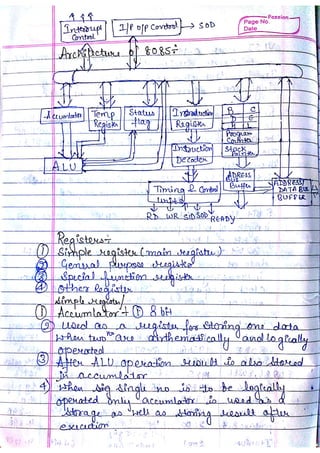 Passion
Page No.
Date
Interrupt Control
I/P O/P Control → SOD
Architecture of 8085:-
Accumlator
Temp Register
Status flag
Instruction Register
B C
D E
H L
Program Counter
Stack Pointer
ALU
Instruction Decoder
Timing & Control unit
ADDRESS BUS Buffer
ADDRESS DATA BUS BUFFER
RD WR SID SOD READY
Registers:-
① Simple register (main register)
② General purpose register
③ Special function register
④ Other Register
Simple register/
① Accumlator:- ① 8 bit
② Used as a register for storing one data
when two are arithematically and logically
operated
③ After ALU operation result is also stored
in accumlator
④ When sig single no is to be logically
operated only accumlator is used as a
storage as well as storing result after
execution